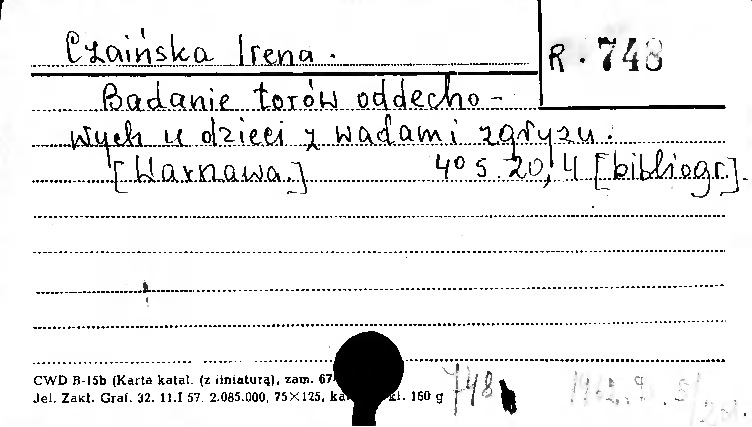 Czaińska Irena.
R. 748
Badanie torów oddecho-
wych u dzieci z wadami zgryzu.
[Warszawa.] 4° s. 20, 4 [bibliogr.].
CWD B-15b (Karta katal. (z liniaturą), zam. 67
Jel. Zakł. Graf. 32. 11.I 57. 2.085.000, 75×125, ka kl. 160 g
748